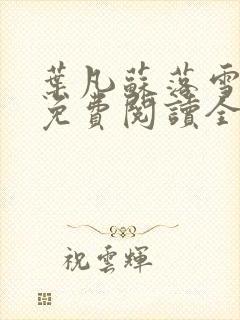 葉凡蘇落雪
免費閱讀全
祝雲輝